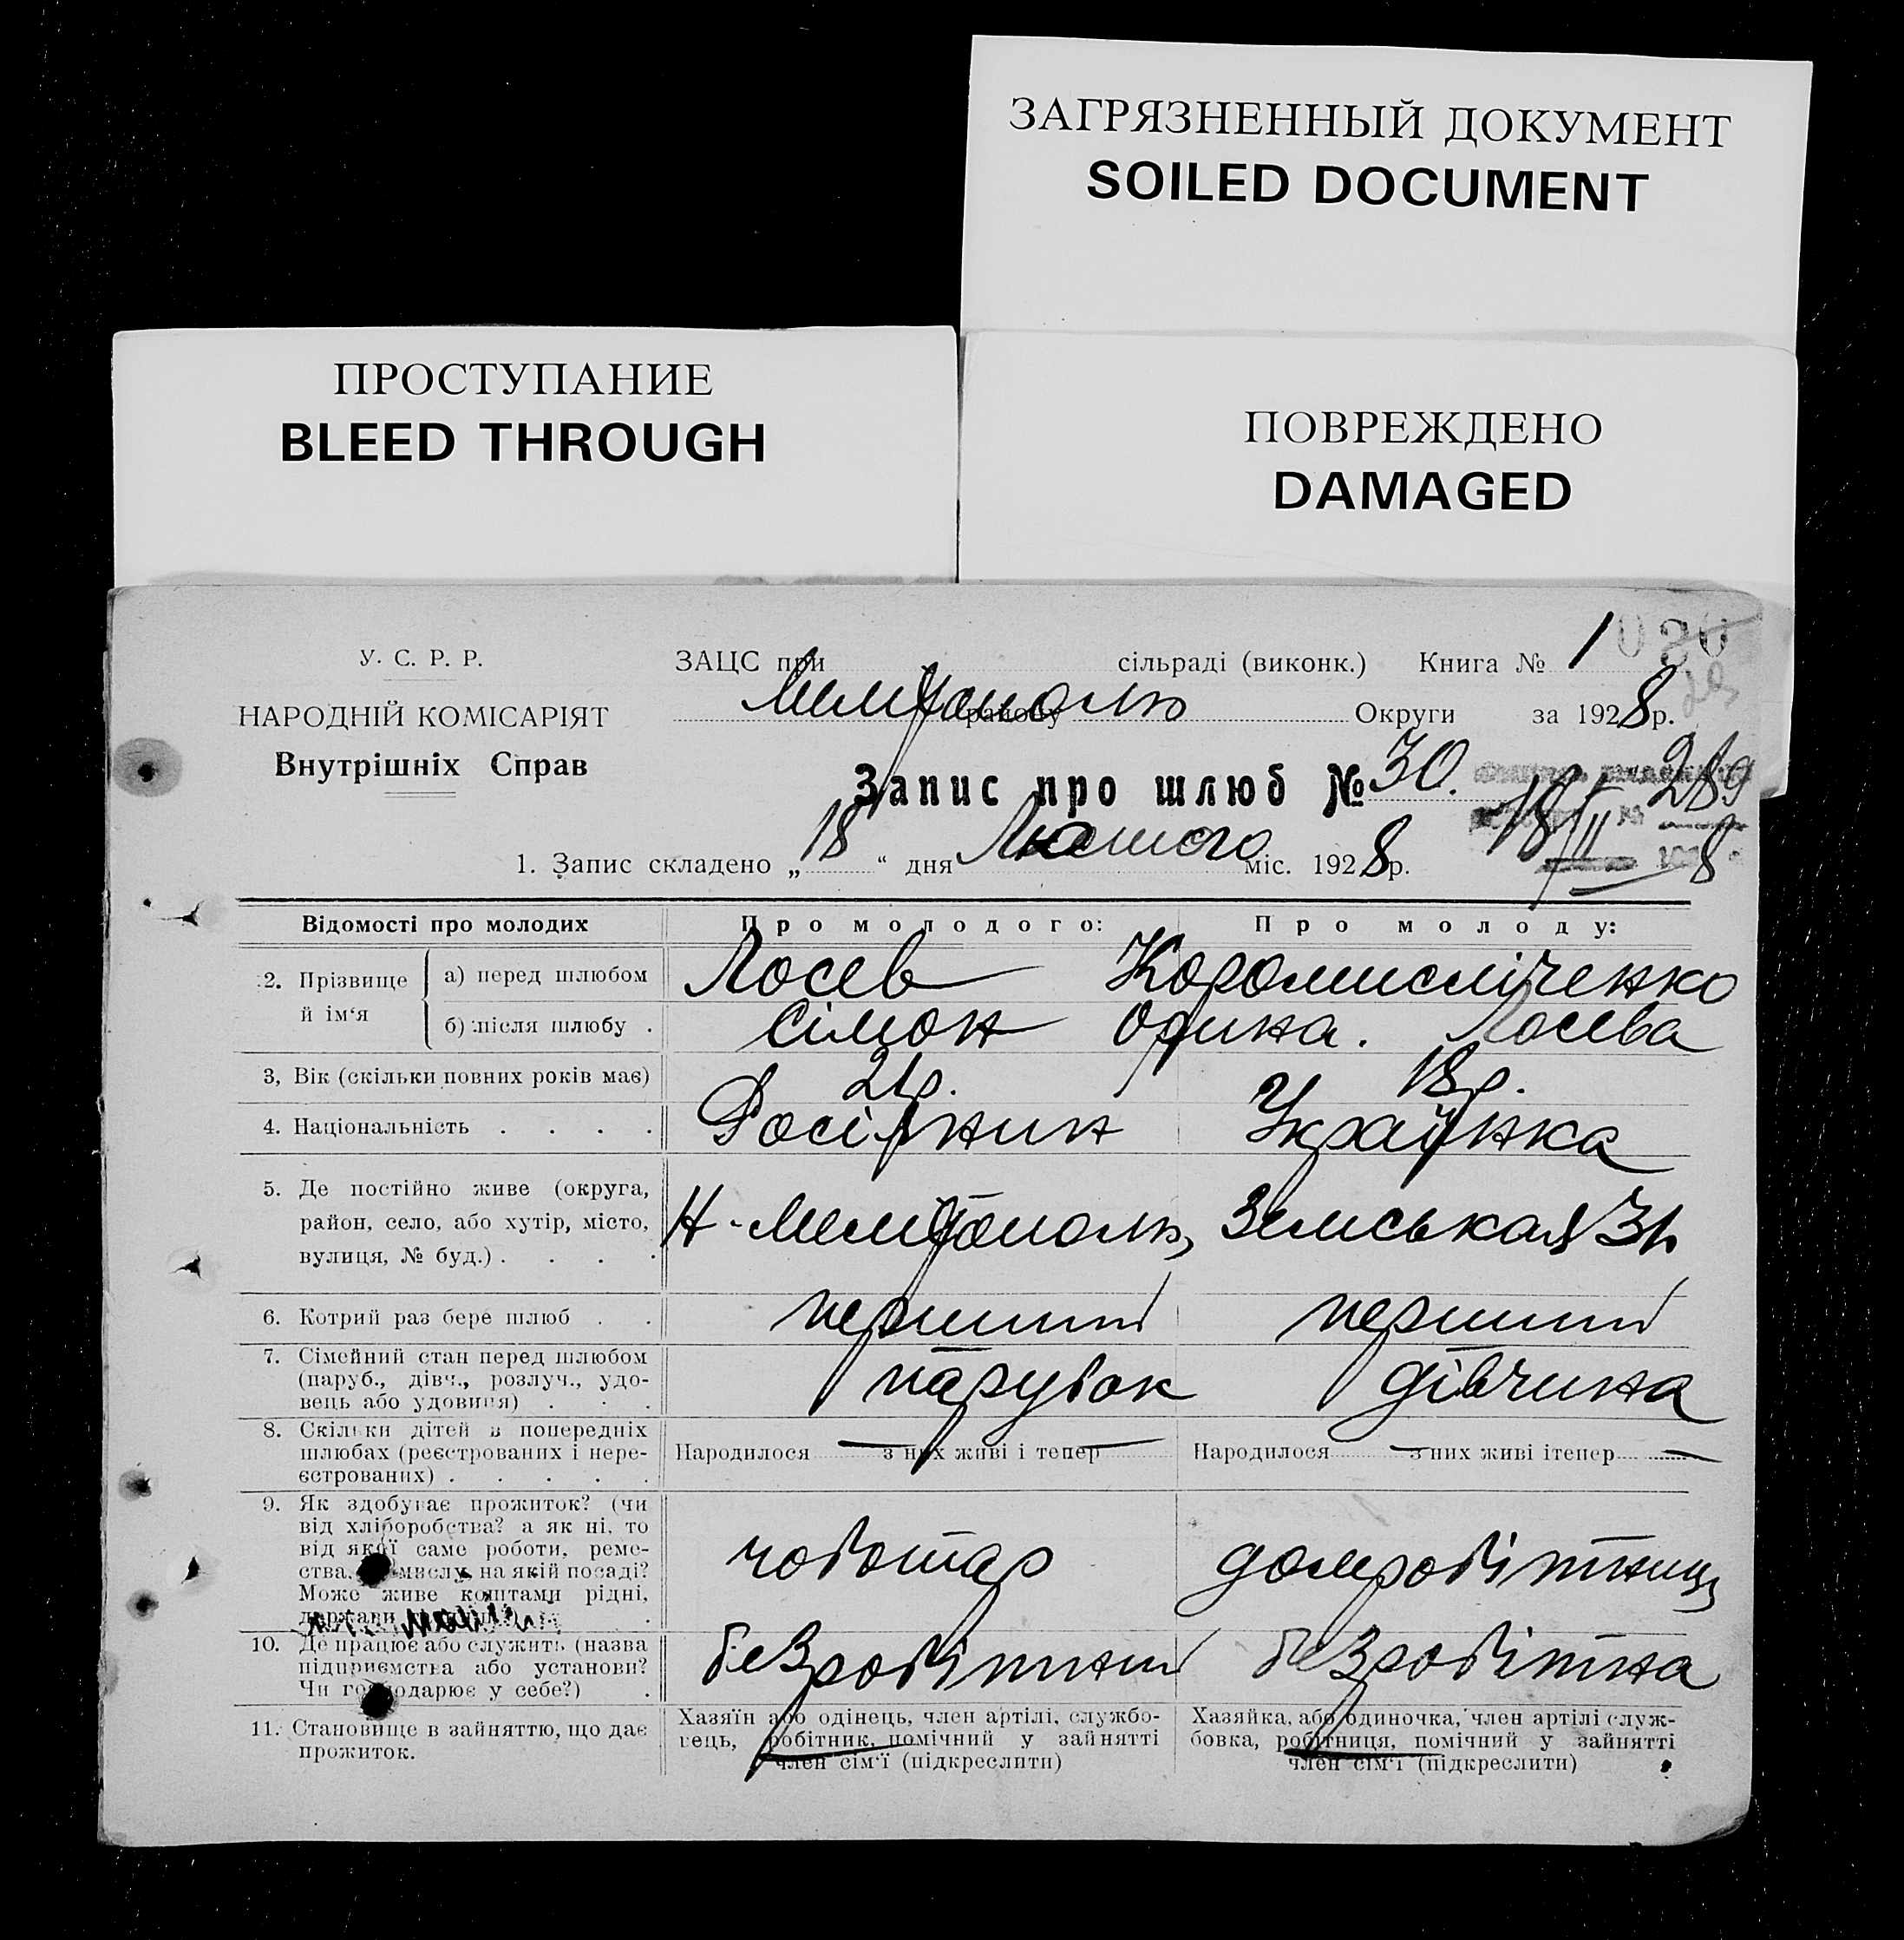 ЗАГРЯЗНЕННЫЙ ДОКУМЕНТ
SOILED DOCUMENT
ПРОСТУПАНИЕ
BLEED THROUGH
ПОВРЕЖДЕНО
DAMAGED
У. С. Р. Р.
НАРОДНІЙ КОМІСАРІЯТ
Внутрішніх Справ
ЗАЦС при сільраді (виконк.) Книга № 1
Мелітополь району Округи за 1928 р.
Запис про шлюб № 30.
289
18/II 8
1. Запис складено „18“ дня Лютого міс. 1928 р.
Відомості про молодих Про молодого: Про молоду:
2. Прізвище й ім‘я
а) перед шлюбом Лосев Коромисліченко
б) після шлюбу . Сімон Орина. Лосева
3, Вік (скільки повних років має) 21р. 18р.
4. Національність . . . . Росіянин Українка
5. Де постійно живе (округа,
район, село, або хутір, місто,
вулиця, № буд.) . . . .
Н-Мелітополь, Земськая
6. Котрий раз бере шлюб . . перший перший
7. Сімейний стан перед шлюбом
(паруб., дівч., розлуч., удо-
вець або удовиця) . . .
парубок дівчина
8. Скільки дітей в попередніх
шлюбах (реєстрованих і нере-
єстрованих) . . . . .
Народилося — з них живі і тепер —
Народилося — з них живі ітепер —
9. Як здобуває прожиток? (чи
від хліборобства? а як ні, то
від якої саме роботи, реме-
ства, на якій посаді?
Може живе коштами рідні,
держави
чоботар домробітниця
10. Де працює або служить (назва
підприємства або установи?
Чи господарює у себе?) .
безробітний безробітна
11. Становище в зайняттю, що дає
прожиток.
Хазяїн або одінець, член артілі, службо-
вець, робітник, помічний у зайнятті
член сім‘ї (підкреслити)
Хазяйка, або одиночка, член артілі служ-
бовка, робітниця, помічний у зайнятті
член сім‘ї (підкреслити)